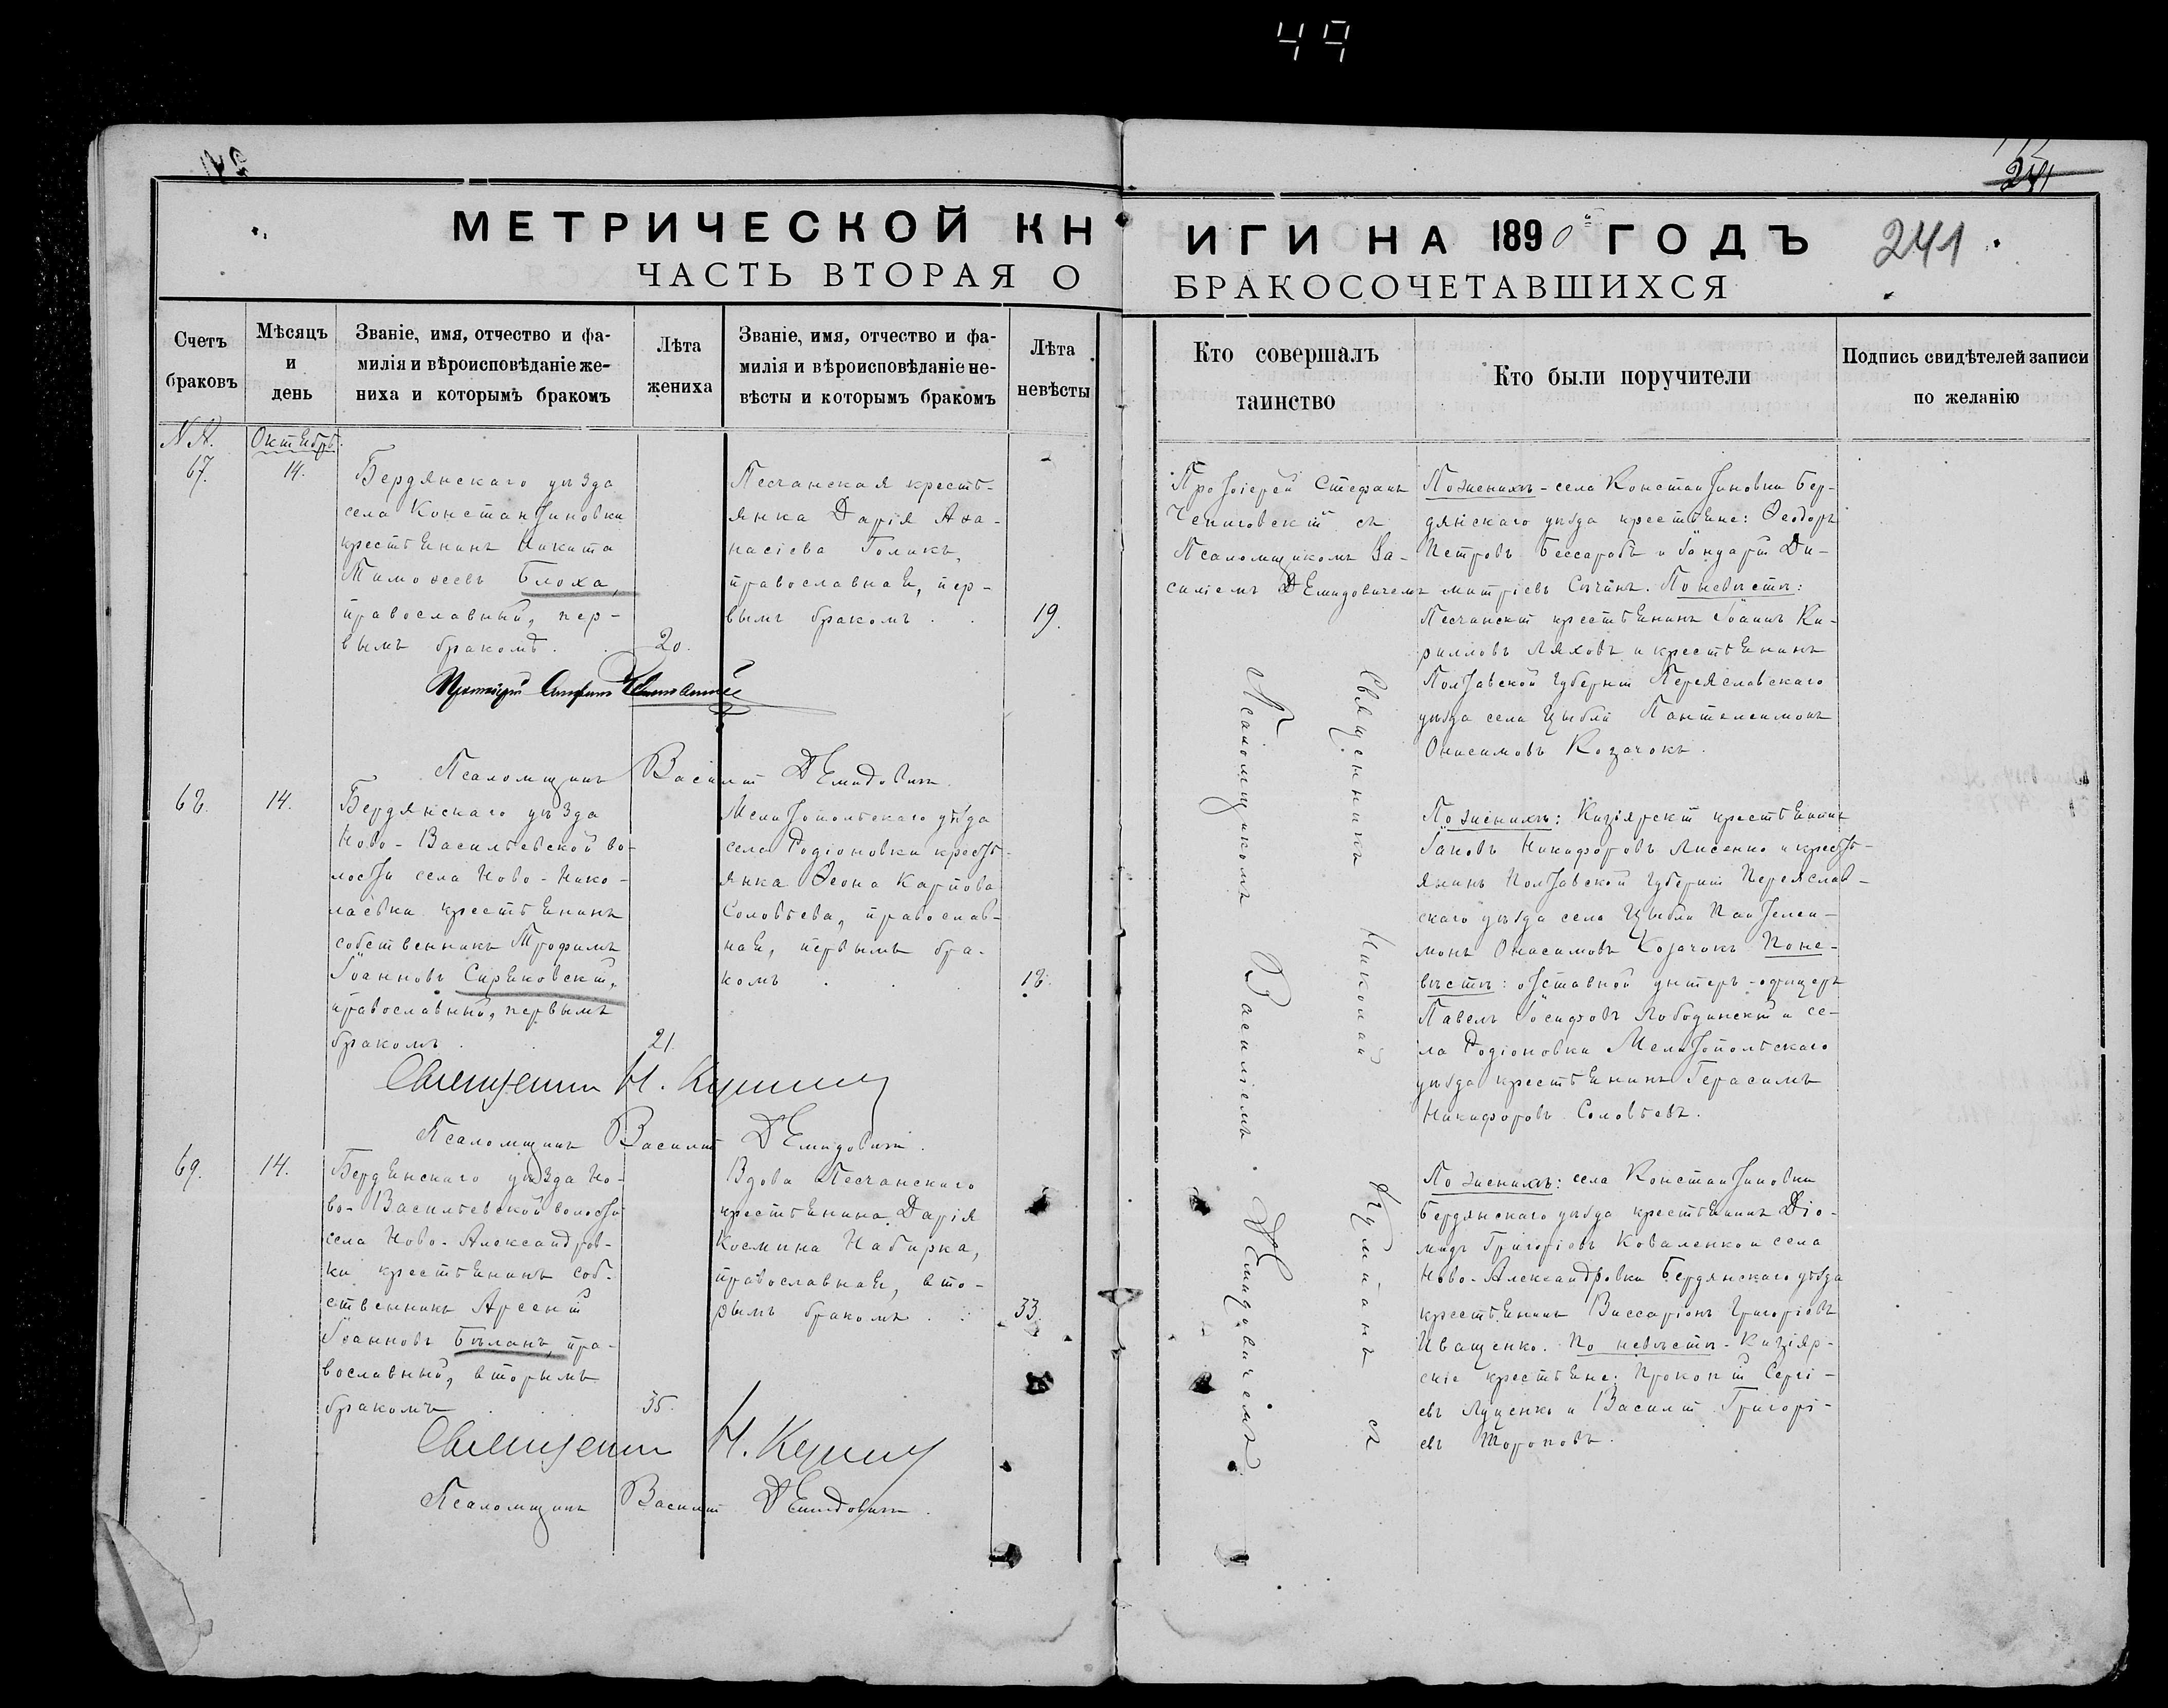 49
241
МЕТРИЧЕСКОЙ КНИГИ НА 1890й ГОДЪ
241
ЧАСТЬ ВТОРАЯ О БРАКОСОЧЕТАВШИХСЯ
Счетъ браковъ
Мѣсяцъ и день
Званіе, имя, отчество и фа-
милія и вѣроисповѣданіе же-
ниха и которымъ бракомъ
Лѣта жениха
Званіе, имя, отчество и фа-
милія и вѣроисповѣданіе не-
вѣсты и которымъ бракомъ
Лѣта невѣсты
Кто совершалъ
таинство
Кто были поручители
Подпись свидѣтелей записи
по желанію
Октябрь.
67.
14.
Бердянскаго уѣзда
села Константиновки
крестьянинъ Никита
Тимоѳеевъ Блоха,
православный, пер-
вымъ бракомъ.
20.
Песчанская кресть-
янка Дарія Аѳа-
насіева Голикъ,
православная, пер-
вымъ бракомъ.
19.
Протоіерей Стефанъ
Псаломщикомъ Ва-
силіемъ Демидовичемъ
По женихѣ - села Константиновки Бер-
дянскаго уѣзда крестьяне: Ѳеодоръ
Петровъ Бессарабъ и Ди-
митріевъ По невѣстѣ:
Песчанскій крестьянинъ Іоаннъ Ки-
рилловъ Ляховъ и крестьянинъ
Полтавской губерніи Переяславскаго
уѣзда села Цыбли Пантелеимонъ
Онисимовъ Козачокъ.
Протоіерей Стефанъ
Псаломщикъ Василій Демидовичъ.
68.
14.
Бердянскаго уѣзда
Ново-Васильевской во-
лости села Ново-Нико-
лаевки крестьянинъ
собственникъ Трофимъ
Іоанновъ Сиряковскій,
православный, первымъ
бракомъ.
21.
Мелитопольскаго уѣзда
села Родіоновки кресть-
янка Ѳеона Карпова
Соловьева, православ-
ная, первымъ бра-
комъ.
18.
Священникъ Николай Куминъ съ
Псаломщикомъ Василіемъ Демидовичемъ
По женихѣ: Кизіярскій крестьянинъ
Іаковъ Никифоровъ Лисенко и кресть-
янинъ Полтавской губерніи Переяслав-
скаго уѣзда села Цыбли Пантелеи-
монъ Онисимовъ Козачокъ. По не-
вѣстѣ: отставной унтеръ-офицеръ
Павелъ Іосифовъ Лободинскій и се-
ла Родіоновки Мелитопольскаго
уѣзда крестьянинъ Герасимъ
Никифоровъ Соловьевъ.
Священникъ Н. Куминъ
Псаломщикъ Василій Демидовичъ.
69.
14.
Бердянскаго уѣзда Но-
во-Васильевской волости
села Ново-Александров-
ки крестьянинъ соб-
ственникъ Арсеній
Іоанновъ Бѣланъ, пра-
вославный, вторымъ
бракомъ.
35.
Вдова Песчанскаго
крестьянина Дарія
Космина Набирка,
православная, вто-
рымъ бракомъ.
33.
По женихѣ: села Константиновки
Бердянскаго уѣзда крестьянинъ Діо-
мидъ Григорьевъ Коваленко и села
Ново-Александровки Бердянскаго уѣзда
крестьянинъ Виссаріонъ Григоріевъ
Иващенко. По невѣстѣ - Кизіяр-
скіе крестьяне: Прокопій Сергі-
евъ Луценко и Василій Григорі-
евъ Тороповъ.
Священникъ Н. Куминъ
Псаломщикъ Василій Демидовичъ.